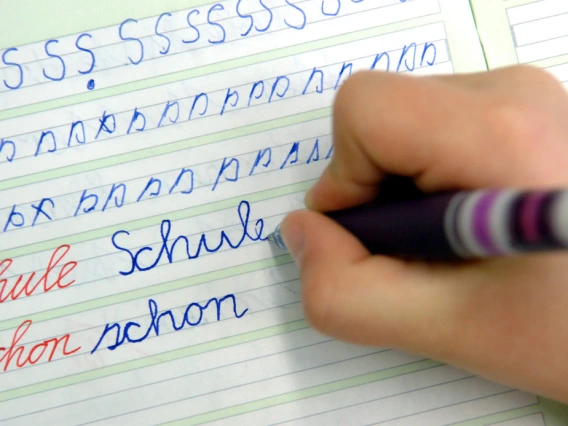 S S S S S S S S S S
s s s s s s s s s s s s s s s
s s s s s s s s s s
hule Schule
chon schon